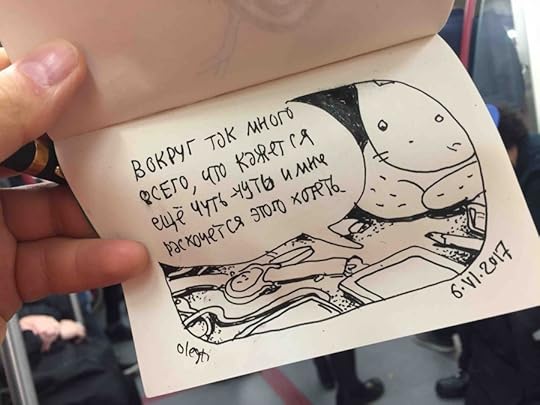 ВОКРУГ ТАК МНОГО
ВСЕГО, ЧТО КАЖЕТСЯ
ЕЩЁ ЧУТЬ-ЧУТЬ И МНЕ
РАСХОЧЕТСЯ ЭТОГО ХОТЕТЬ
6.VI.2017